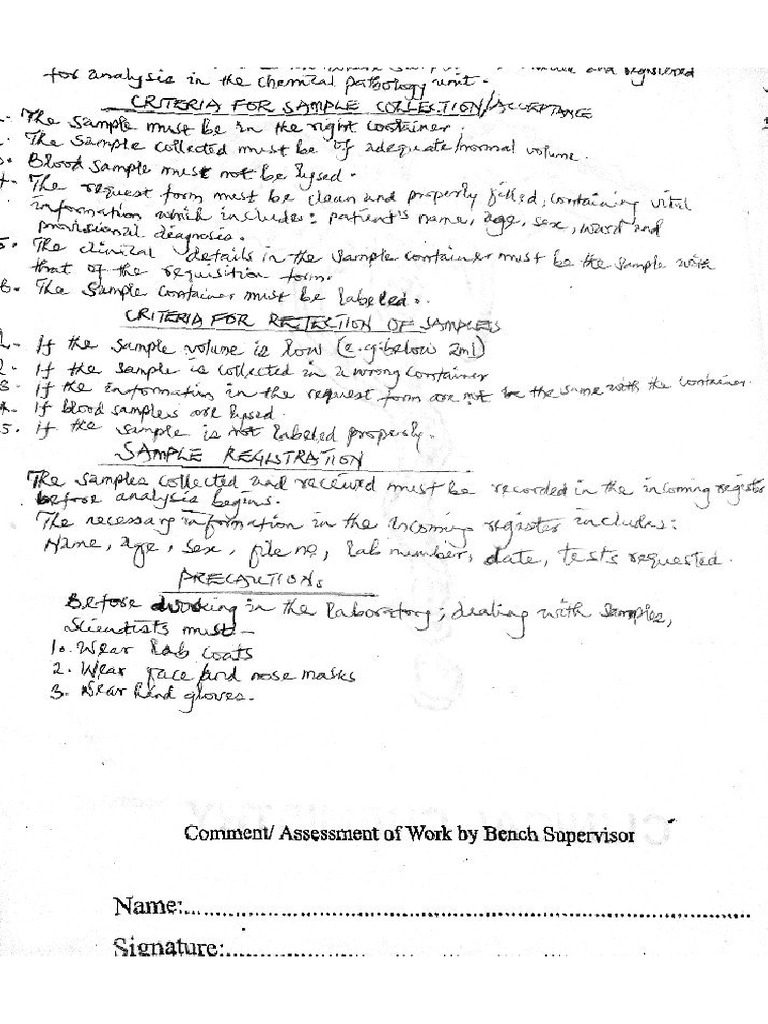 and registered
for analysis in the chemical pathology unit.
CRITERIA FOR SAMPLE COLLECTION/ACCEPTANCE
The sample must be in the right container.
The sample collected must be of adequate/normal volume.
Blood sample must not be lysed.
The request form must be clean and properly filled, containing vital
information which includes: patient's name, age, sex, ward and
provisional diagnosis.
5. The clinical details in the sample container must be the sample with
that of the requisition form.
6. The sample container must be labeled.
CRITERIA FOR REJECTION OF SAMPLES
1. If the sample volume is low (e.g. below 2ml)
2. If the sample is collected in a wrong container
3. If the information in the request form are not in the same with the container.
4. If blood samples are lysed.
5. if the sample is not labeled properly.
SAMPLE REGISTRATION
The samples collected and received must be recorded in the incoming register
before analysis begins.
The necessary information in the incoming register includes:
Name, age, sex, file no, lab number, date, tests requested.
PRECAUTIONS
Before working in the laboratory; dealing with samples,
scientists must-
1. Wear lab coats
2. Wear face and nose masks
3. Wear hand gloves.
Comment/ Assessment of Work by Bench Supervisor
Name:
Signature: